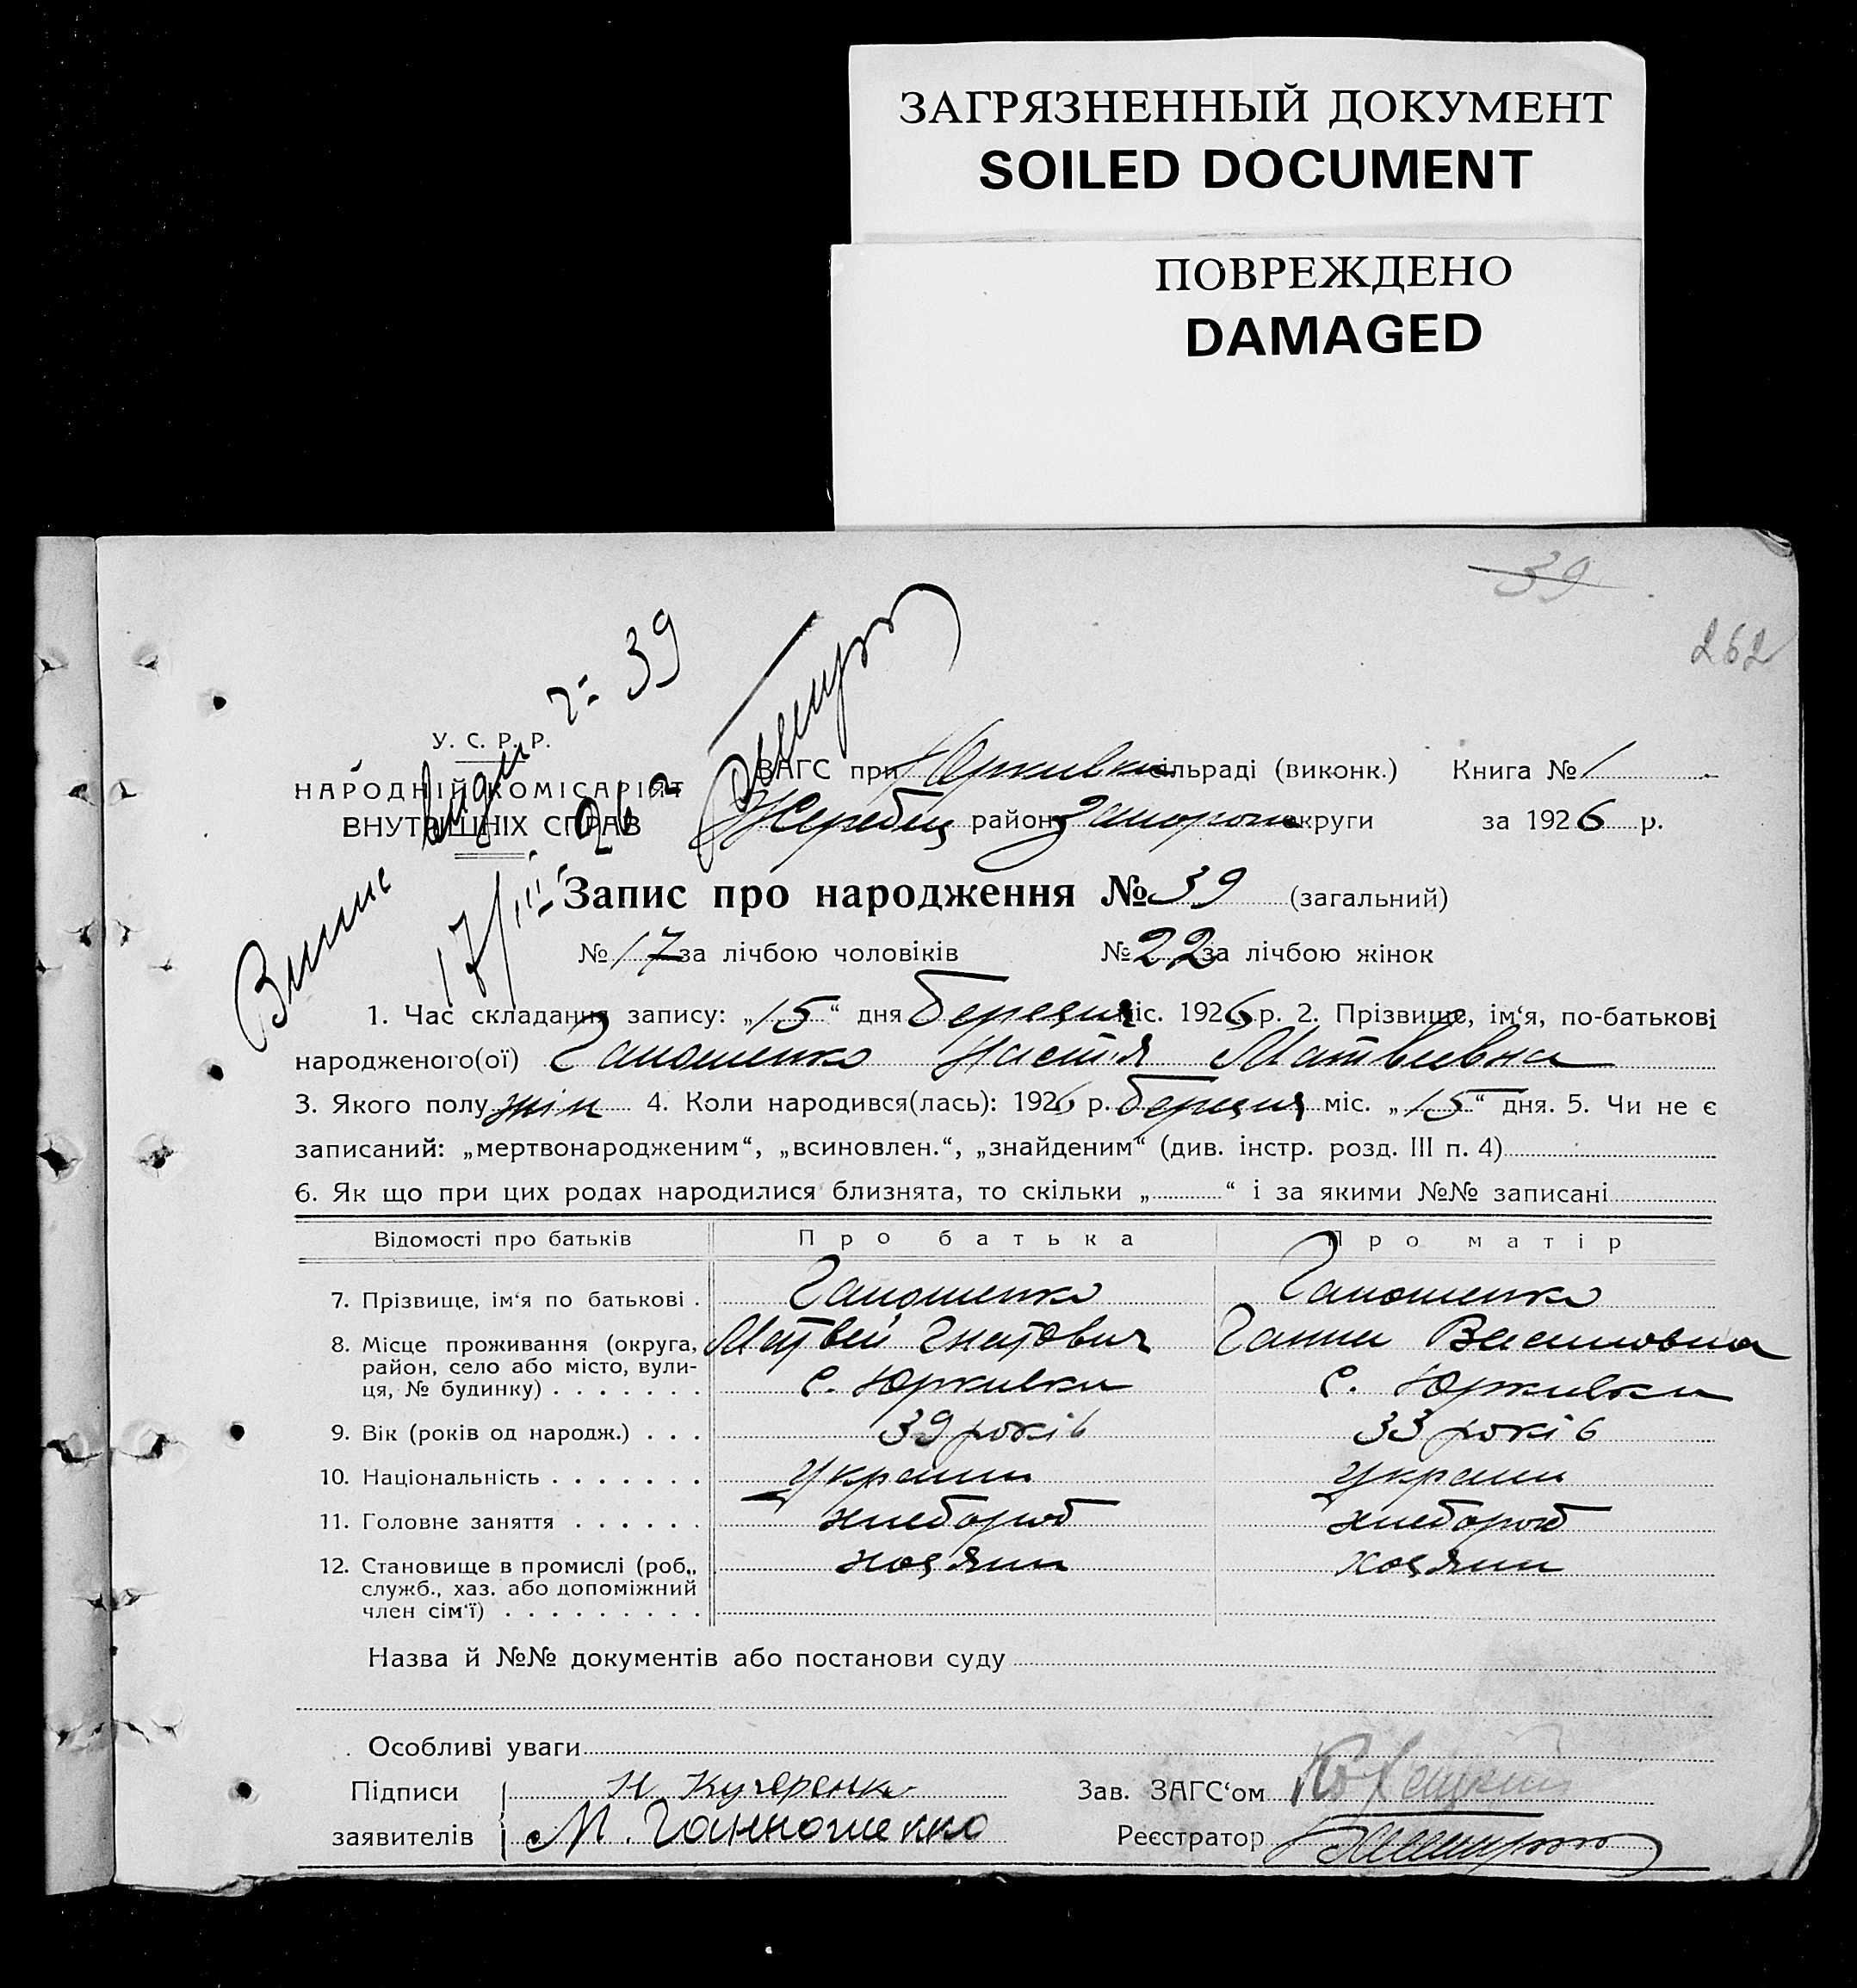 ЗАГРЯЗНЕННЫЙ ДОКУМЕНТ
SOILED DOCUMENT
ПОВРЕЖДЕНО
DAMAGED
39
262
39
У. С. Р. Р.
НАРОДНІЙ КОМІСАРІЯТ
ВНУТРІШНІХ СПРАВ
17/III 26
ЗАГС при Юркивки сільраді (виконк.) Книга № 1
Жеребец район Запорож округи за 1926 р.
Запис про народження № 39 (загальний)
№ 17 за лічбою чоловіків № 22 за лічбою жінок
1. Час складання запису: „15“ дня березня міс. 1926 р. 2. Прізвище, ім‘я, по-батькові
народженого(ої) Ганошенко Настія Матвіевна
3. Якого полу жін 4. Коли народився(лась): 1926 р. березня міс. „15“ дня. 5. Чи не є
записаний: „мертвонародженим“, „всиновлен.“, „знайденим“ (див. інстр. розд. III п. 4)
6. Як що при цих родах народилися близнята, то скільки „ “ і за якими №№ записані
Відомості про батьків Про батька Про матір
7. Прізвище, ім‘я по батькові . Ганошенко Ганошенко
8. Місце проживання (округа, Матвей Гнатович Ганна Василовна
район, село або місто, вули-
ця, № будинку) . . . . . . . с. Юркивки с. Юркивки
9. Вік (років од народж.) . . . 39 років 33 років
10. Національність . . . . . . . Украин украин
11. Головне заняття . . . . . . хлебороб хлебороб
12. Становище в промислі (роб., хозяин хозяин
служб., хаз. або допоміжний
член сім‘ї) . . . . . . . . .
Назва й №№ документів або постанови суду
Особливі уваги
Підписи Н Кучеренко Зав. ЗАГС‘ом
заявителів М. Ганношенко Реєстратор